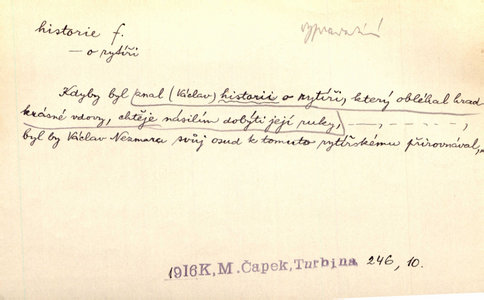 historie f.
vypravování
— o rytíři
Kdyby byl znal (Václav) historii o rytíři, který obléhal hrad
krásné vdovy, chtěje násilím dobýti její ruky, —, —, —, —,
byl by Václav Nezmara svůj osud k tomuto rytířskému přirovnával,
1916K, M. Čapek, Turbina 246, 10.